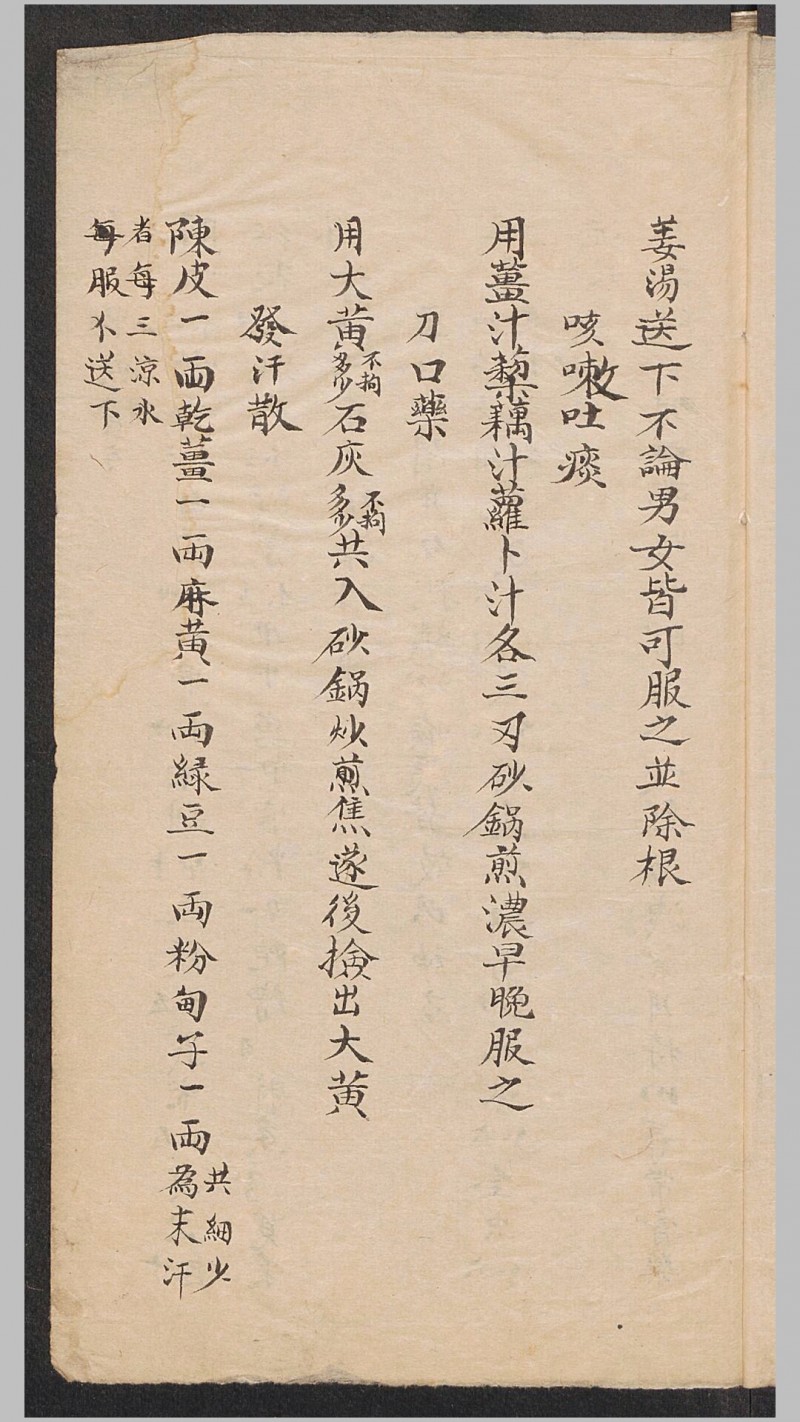 姜湯送下不論男女皆可服之並除根
咳嗽吐痰
用薑汁藜藕汁蘿卜汁各三刃砂鍋煎濃早晚服之
刀口藥
用大黄不拘多少石灰不拘多少共入砂鍋炒煎焦遂後撿出大黄
發汗散
陳皮一両乾薑一両麻黄一両緑豆一両粉甸子一両共細少
為末汗
者每三涼水
每服送下